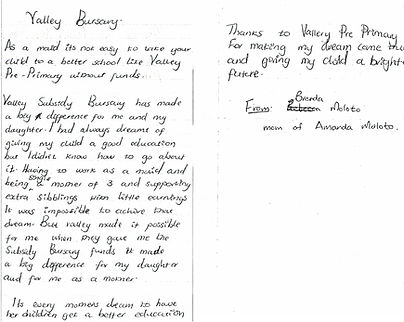 Valley Bursary.
As a maid its not easy to take your
child to a better school like Valley
Pre-Primary without funds.
Valley Subsidy Bursary has made
a big difference for me and my
daughter. I had always dreams of
giving my child a good education
but I didnt know how to go about
it. Having to work as a maid and
being single mother of 3 and supporting
extra sibblings with little earnings
It was impossible to achive that
dream. But valley made it possible
for me when they gave me the
Subsidy Bursary funds it made
a big difference for my daughter
and for me as a mother.
Its every mothers dream to have
her children get a better education
Thanks to Valley Pre Primary
For making my dream come true
and giving my child a brighter
future.
From: Brenda Moloto
mom of Amanda Moloto.